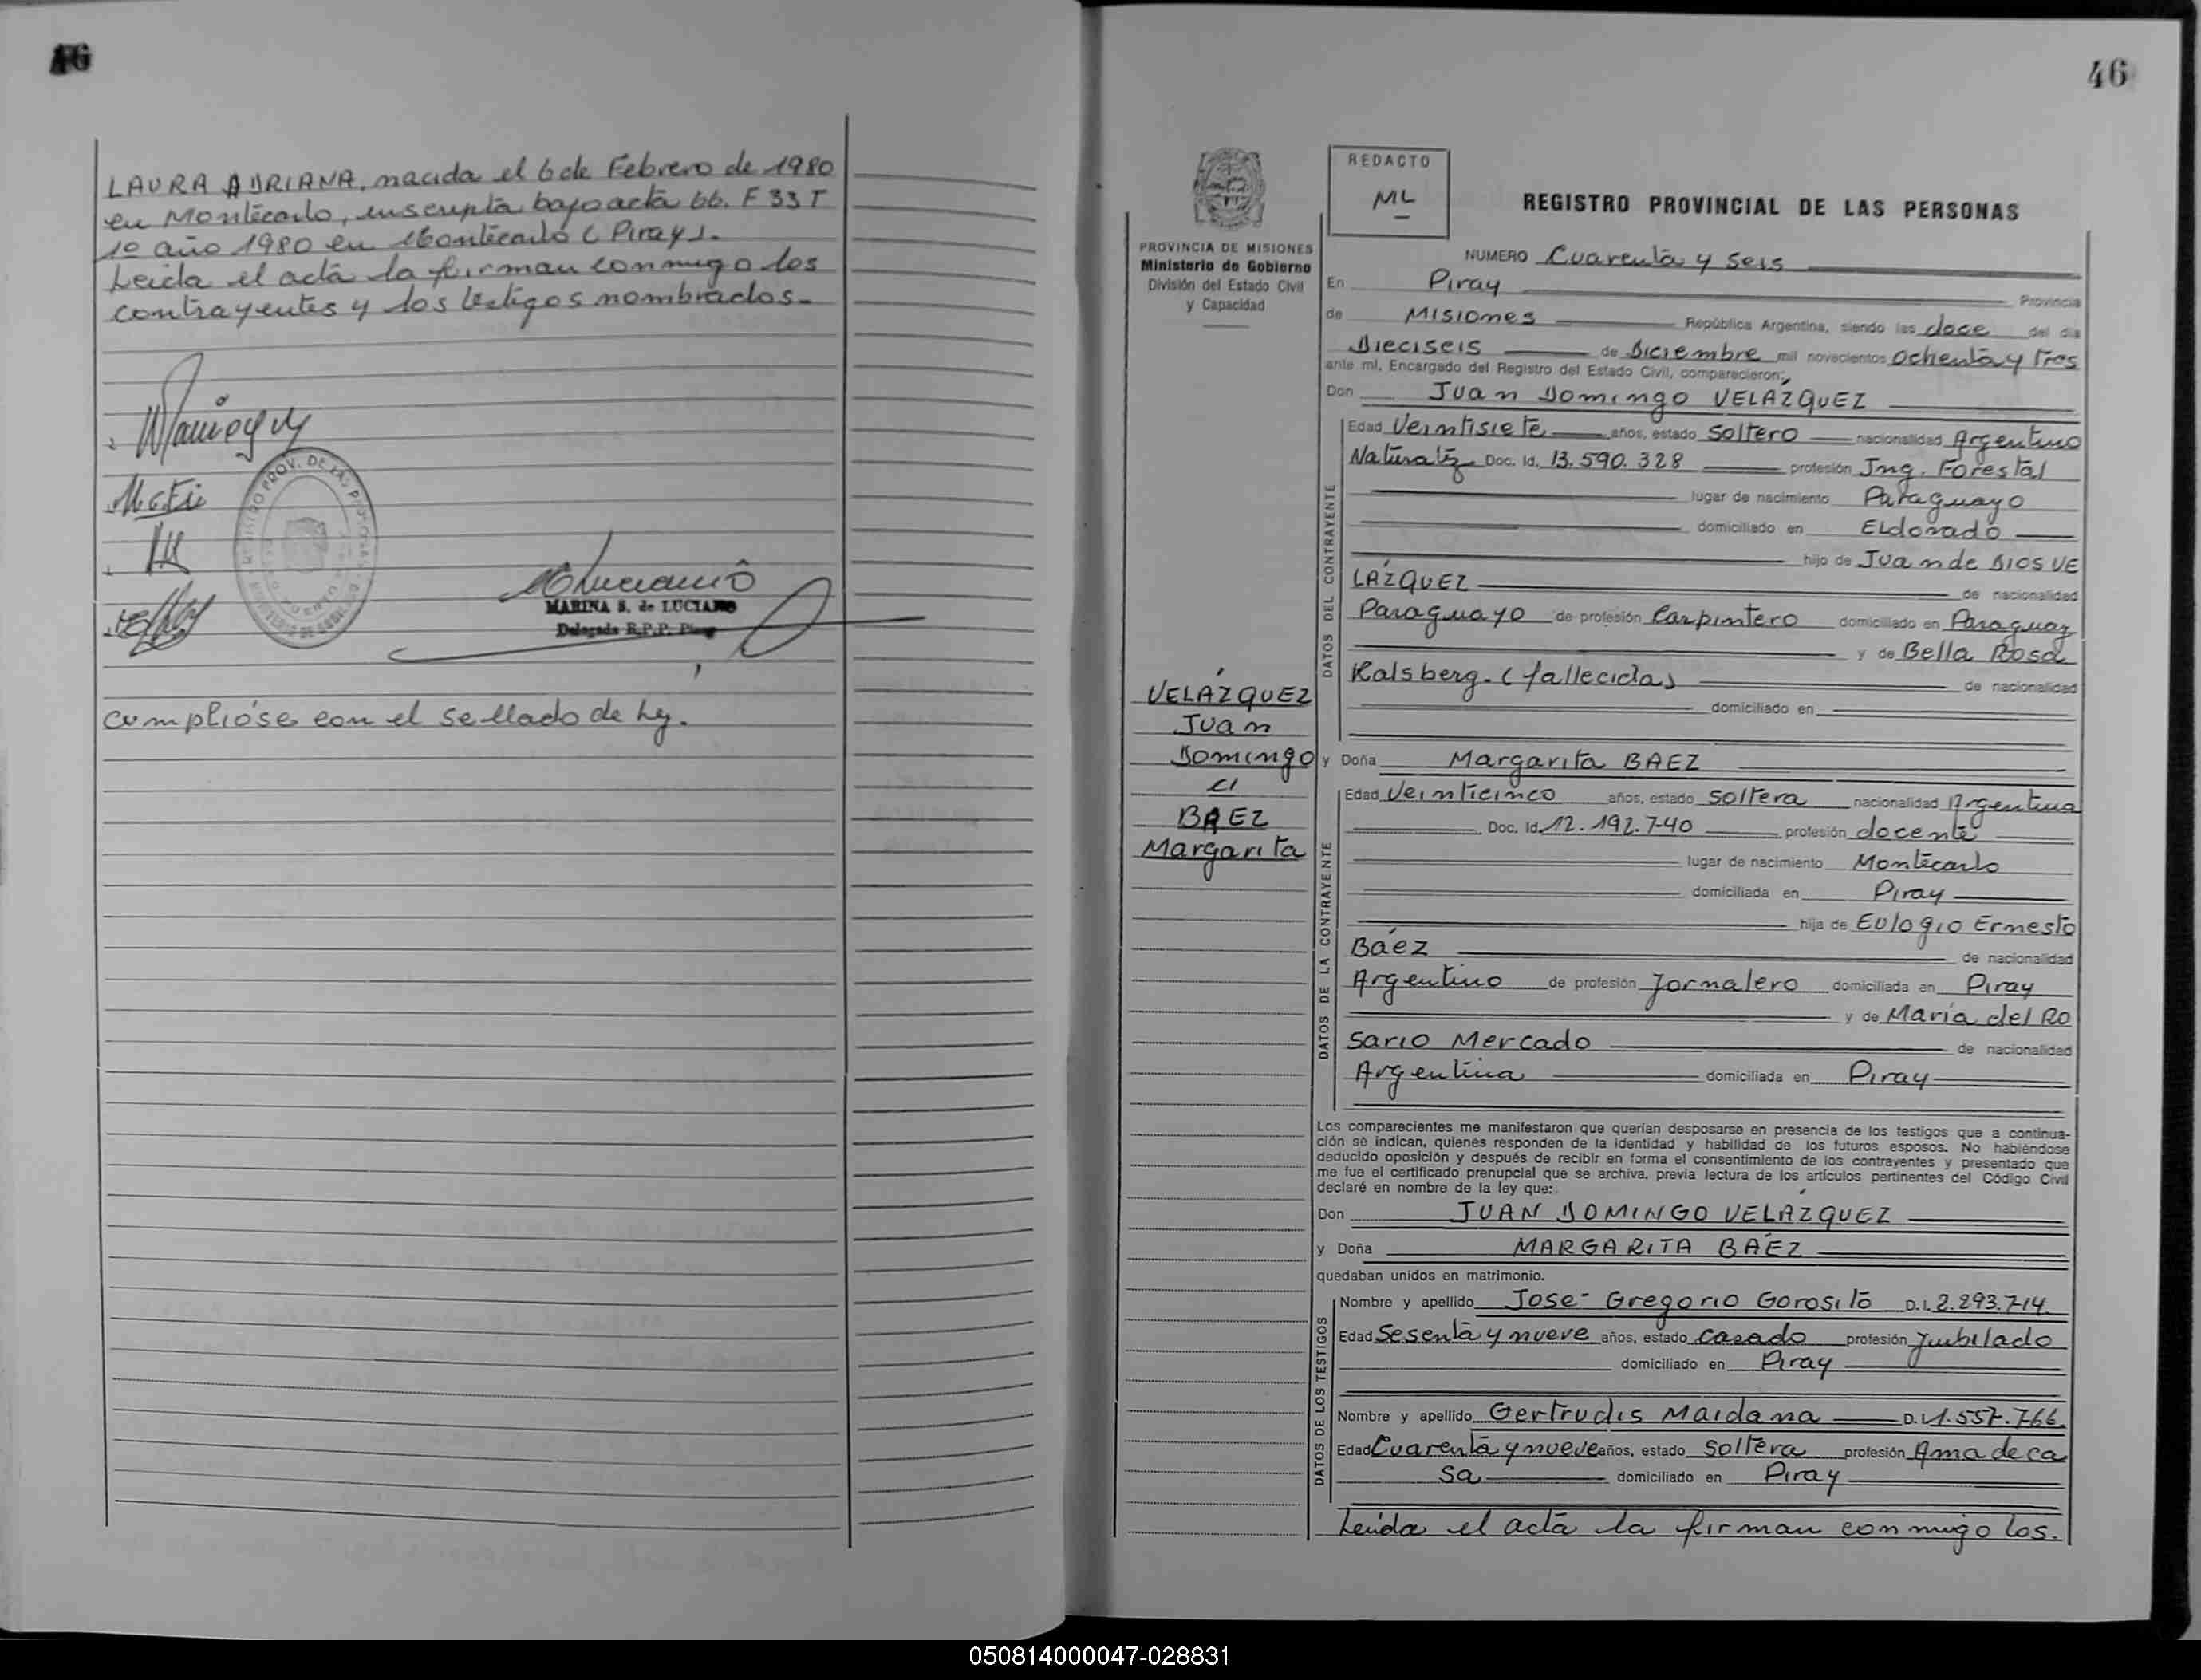 46
LAURA ADRIANA, nacida el 6 de Febrero de 1980
en Montecarlo, inscripta bajo acta 66. F 33 T
1º año 1980 en Montecarlo (Piray).
Leida el acta la firman conmigo los
contrayentes y los testigos nombrados.
REGISTRO PROV. DE LAS PERSONAS
MARINA S. de LUCIANO
Delegada R.P.P. Piray
cumplióse con el sellado de ley.
46
REDACTO
ML
REGISTRO PROVINCIAL DE LAS PERSONAS
PROVINCIA DE MISIONES
Ministerio de Gobierno
División del Estado Civil
y Capacidad
VELÁZQUEZ
Juan
Domingo
c/
BAEZ
Margarita
NUMERO Cuarenta y seis
En Piray Provincia
de Misiones República Argentina, siendo las doce del día
Dieciseis de Diciembre mil novecientos ochenta y tres
ante mí, Encargado del Registro del Estado Civil, comparecieron:
Don Juan Domingo VELÁZQUEZ
DATOS DEL CONTRAYENTE
Edad Veintisiete años, estado soltero nacionalidad Argentino
Naturaliz Doc. Id. 13.590.328 profesión Ing. Forestal
lugar de nacimiento Paraguayo
domiciliado en ELdorado
hijo de Juan de DIOS VE
LÁZQUEZ de nacionalidad
Paraguayo de profesión Carpintero domiciliado en Paraguay
y de Bella Rosa
Kalsberg. (fallecida) de nacionalidad
domiciliado en
y Doña Margarita BAEZ
DATOS DE LA CONTRAYENTE
Edad Veinticinco años, estado soltera nacionalidad Argentina
Doc. Id. 12.192.740 profesión docente
lugar de nacimiento Montecarlo
domiciliada en Piray
hija de Eulogio Ernesto
Báez de nacionalidad
Argentino de profesión Jornalero domiciliada en Piray
y de María del RO
sario Mercado de nacionalidad
Argentina domiciliada en Piray
Los comparecientes me manifestaron que querían desposarse en presencia de los testigos que a continua-
ción se indican, quienes responden de la identidad y habilidad de los futuros esposos. No habiéndose
deducido oposición y después de recibir en forma el consentimiento de los contrayentes y presentado que
me fue el certificado prenupcial que se archiva, previa lectura de los artículos pertinentes del Código Civil
declaré en nombre de la ley que:
Don JUAN DOMINGO VELÁZQUEZ
y Doña MARGARITA BÁEZ
quedaban unidos en matrimonio.
DATOS DE LOS TESTIGOS
Nombre y apellido José Gregorio Gorosito D.I. 2.293.714.
Edad Sesenta y nueve años, estado casado profesión Jubilado
domiciliado en Piray
Nombre y apellido Gertrudis Maidana D.I. 1.557.766.
Edad Cuarenta y nueve años, estado soltera profesión Ama de ca
sa domiciliado en Piray
Leida el acta la firman conmigo los.
050814000047-028831